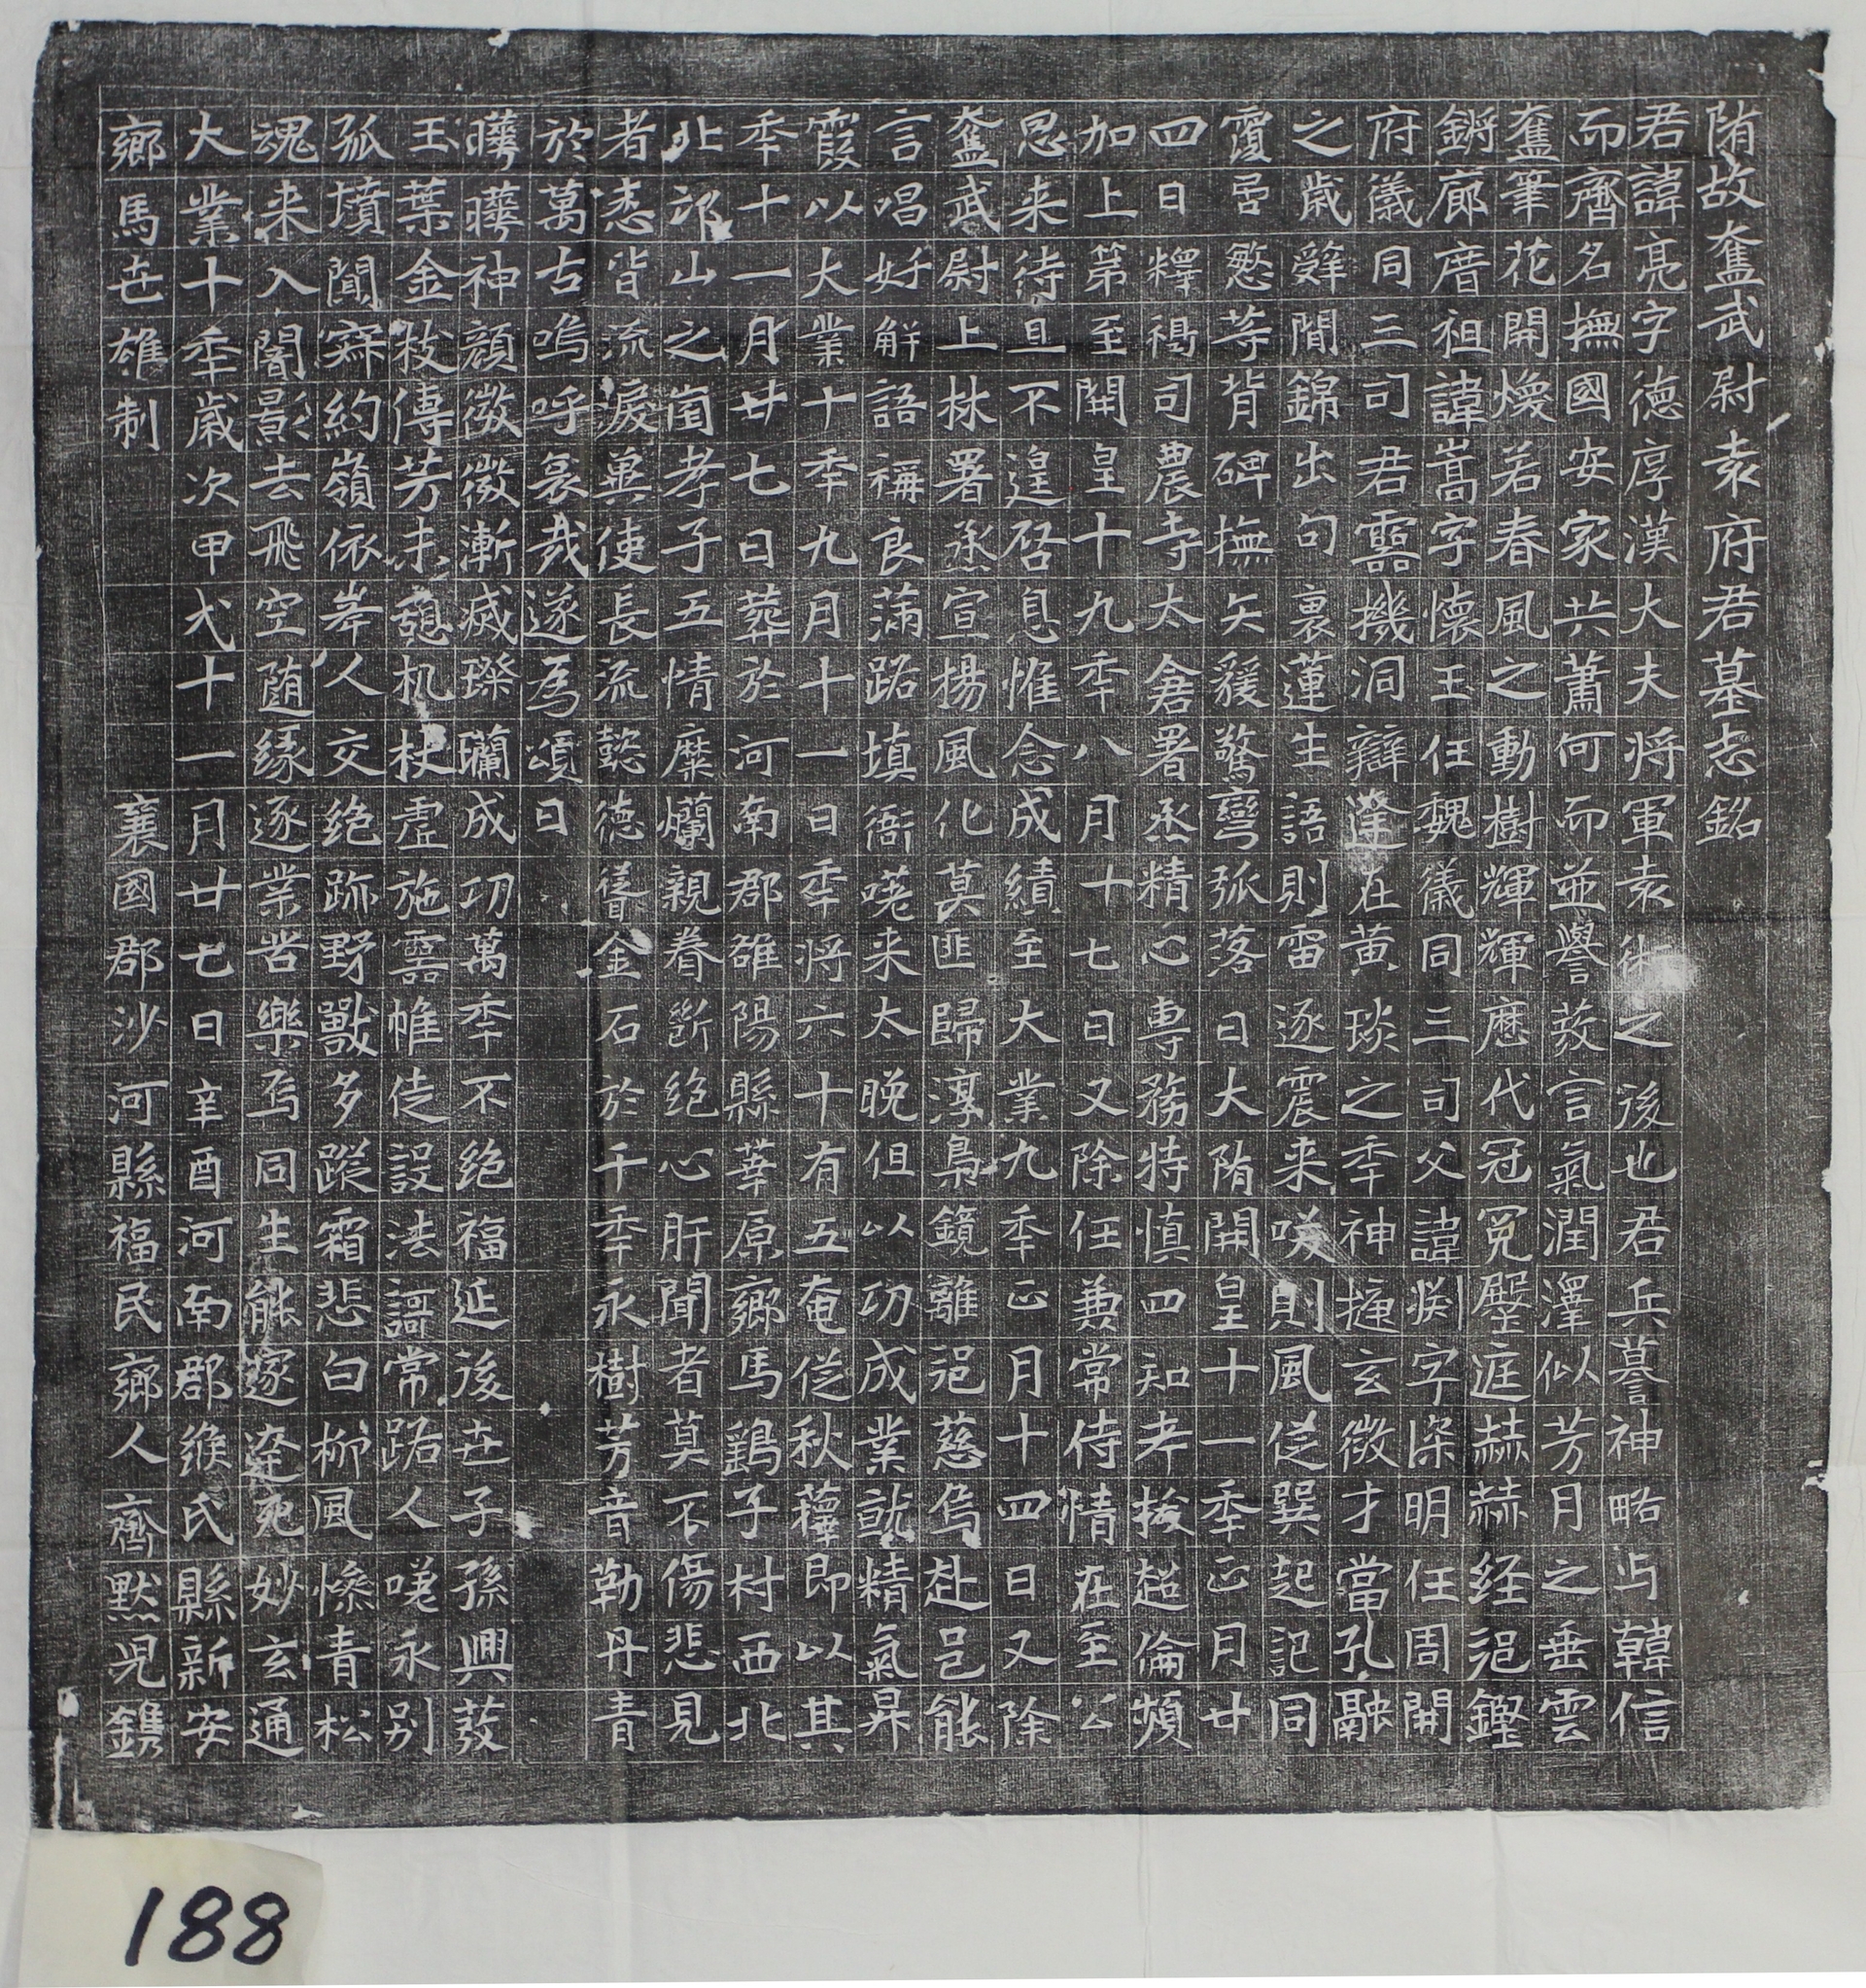 隋故奮武尉袁府君墓志銘
君諱亮字德厚漢大夫将軍袁術之後也君兵謩神略与韓信
而齊名撫國安家共蕭何而並譽茇言氣潤澤似芳月之垂雲
奮筆花開煥若春風之動樹輝輝歴代冠冕堅庭赫赫経邦鏗
鏘廊廟祖諱嵩字懷玉任魏儀同三司父諱猷字深明任周開
府儀同三司君靈機洞辯逢在黄琰之秊神摳玄微才當孔融
之歲辤間錦出句裏蓮生語則雷逐震来咲則風従巽起記同
覆局慜等背碑撫矢猨驚彎弧落日大隋開皇十一秊正月廿
四日釋褐司農寺太倉署丞精心專務特慎四知考挍超倫頻
加上第至開皇十九秊八月十七日又除任兼常侍情在至公
思来待旦不遑啓息惟念成績至大業九秊正月十四日又除
奮武尉上林署丞宣揚風化莫匪歸淳梟鏡離邑慈烏赴邑能
言唱好解語稱良滿路填衢嗟来太晚但以功成業就精氣昇
霞以大業十秊九月十一日秊将六十有五奄従秋蘀即以其
秊十一月廿七日葬於河南郡雒陽縣華原鄉馬鷄子村西北
北邙山之崗孝子五情糜爛親眷斷絶心肝聞者莫不傷悲見
者悉皆流淚兾使長流懿德登金石於千秊永樹芳音勒丹青
於萬古嗚呼哀哉遂爲頌曰
曄曄神顔徴徴漸威璨斕成功萬秊不絶福延後世子孫興茇
玉葉金枝傳芳未憩机杖虚施靈帷徒設法謌常路人嗟永别
孤墳閴寂約嶺依岑人交絶跡野獸多蹤霜悲白柳風慘青松
魂来入闇影去飛空隨緣逐業苦樂焉同生能邃達死妙玄通
大業十秊歲次甲弋十一月廿七日辛酉河南郡緱氏縣新安
鄉馬世雄制　襄國郡沙河縣福民鄉人齊默児鐫
188